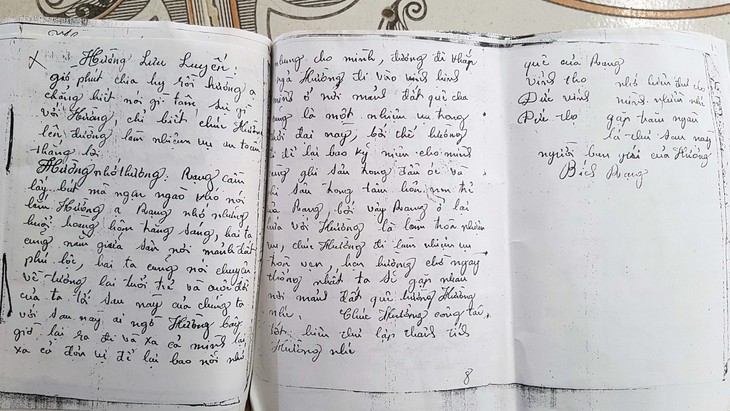 Hường Lưu Luyến.
giờ phút chia ly rồi hường ạ
chẳng biết nói gì tâm sự gì
với Hường, chỉ biết chúc Hường
lên đường làm nhiệm vụ an toàn
thắng lợi
Hường nhớ thương. Rang cầm
lấy bút mà ngại ngào khó nói
lắm Hường ạ Rang nhớ những
buổi hoàng hôn trăng sáng, hai ta
cùng nằm giữa sân nơi mảnh đất
phú lộc, hai ta cùng nói chuyện
về tương lai tuổi trẻ và cuộc đời
của ta lồi sau này của chúng ta
với sau này ai ngờ Hường bây
giờ lại ra đi và xa cả mình lại
xa cả đơn vị để lại bao nỗi nhớ
nhung cho mình, đường đi thấp
ngà Hường đi vào vinh linh
mình ở nơi mảnh đất quê cha
cũng là một nhiệm vụ trong
thời đại nay, bởi thế hường
đi để lại bao kỷ niệm cho mình
cũng ghi sâu trong đầu óc và
ghi sâu trong tâm hồn
của Rang bởi vậy Rang ở lại
với Hường là làm tròn nhiệm
vụ, chúc Hường đi làm nhiệm vụ
toàn vẹn hẹn hường chờ ngày
thống nhất ta sẽ gặp nhau
nơi mảnh đất quê hương Hường
nhé. Chúc Hường công tác
tốt lập thành tích
Hường nhé
8
quê của Rang
Vĩnh thọ nhớ luôn
Đức vinh mình nghiên nhé
Đức thọ gặp trăm ngàn
lá thư sau này
người bạn gái của Hường
Bích Rang